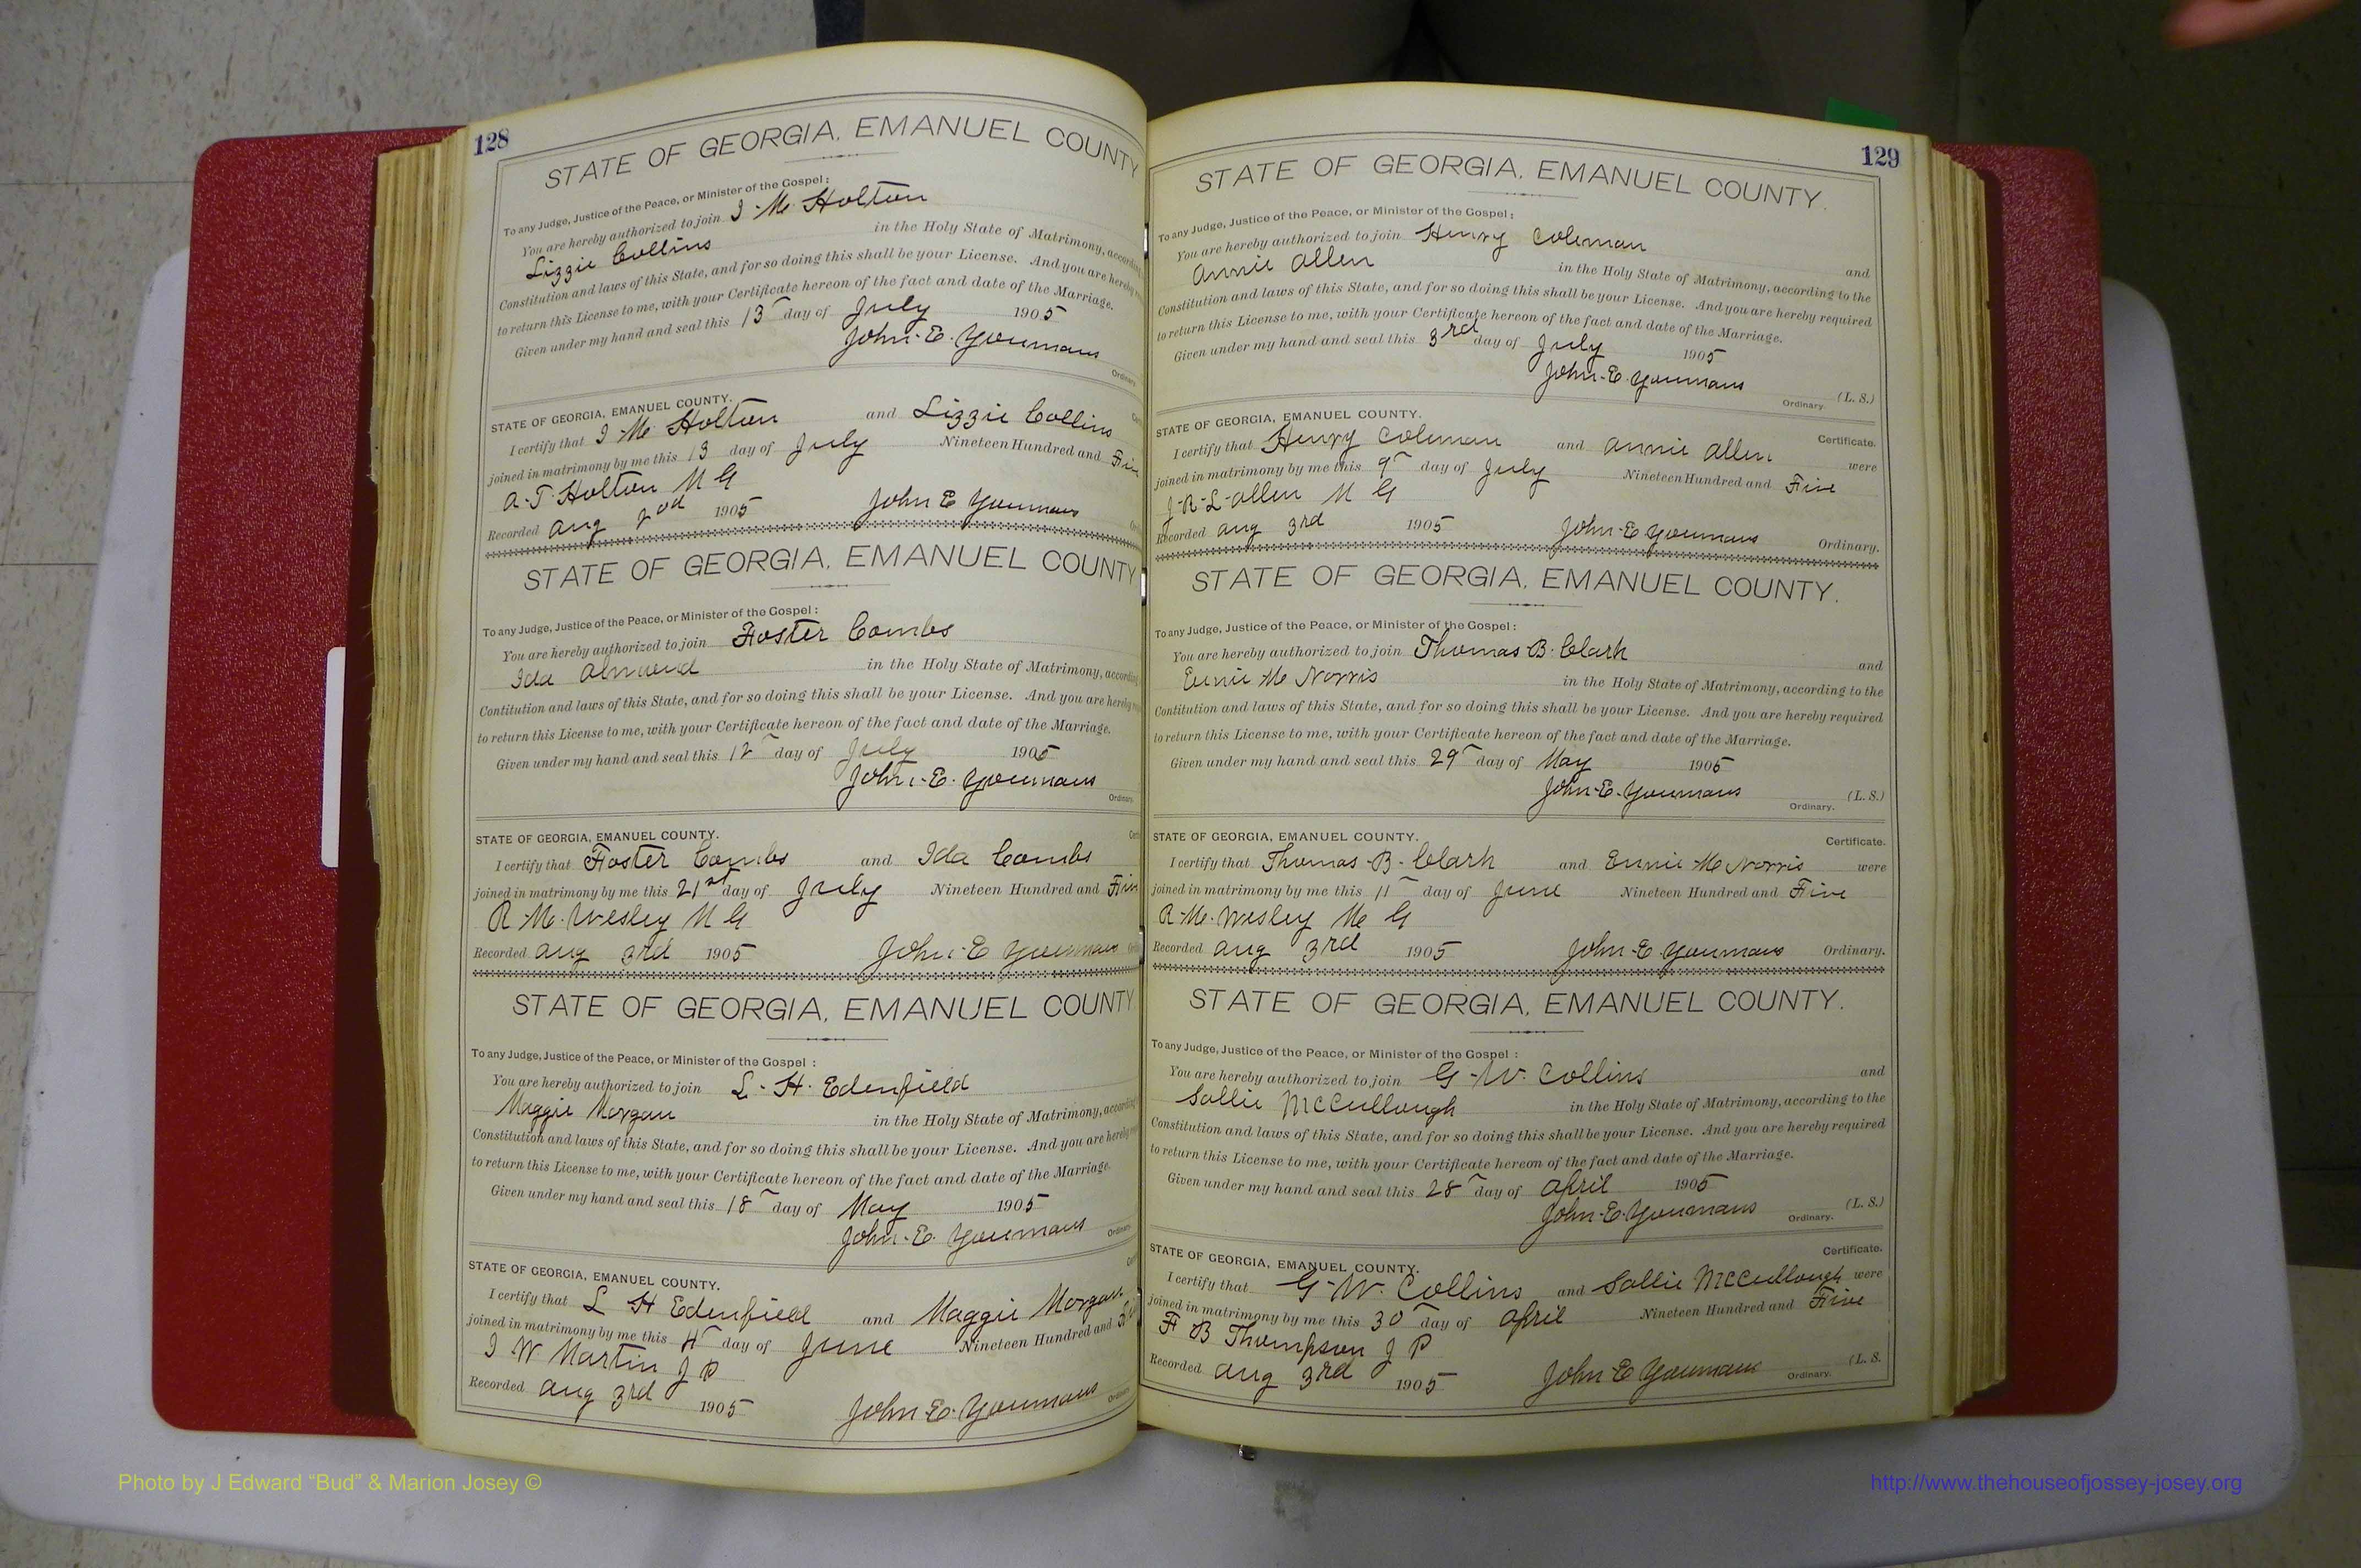 128
STATE OF GEORGIA, EMANUEL COUNTY
To any Judge, Justice of the Peace, or Minister of the Gospel:
You are hereby authorized to join J. M. Holton
Lizzie Collins in the Holy State of Matrimony, according
Constitution and laws of this State, and for so doing this shall be your License. And you are hereby
to return this License to me, with your Certificate hereon of the fact and date of the Marriage.
Given under my hand and seal this 13 day of July 1905
John. E. Youmans
Ordinary
STATE OF GEORGIA, EMANUEL COUNTY.
I certify that J M Holton and Lizzie Collins
joined in matrimony by me this 13 day of July Nineteen Hundred and Five
A. T. Holton M G
Recorded Aug 2nd 1905 John E Youmans
STATE OF GEORGIA, EMANUEL COUNTY
To any Judge, Justice of the Peace, or Minister of the Gospel:
You are hereby authorized to join Foster Combs
Ida Almond in the Holy State of Matrimony, according
Contitution and laws of this State, and for so doing this shall be your License. And you are hereby
to return this License to me, with your Certificate hereon of the fact and date of the Marriage.
Given under my hand and seal this 12 day of July 1905
John. E. Youmans
Ordinary.
STATE OF GEORGIA, EMANUEL COUNTY.
I certify that Foster Combs and Ida Combs
joined in matrimony by me this 21st day of July Nineteen Hundred and Five
R. M. Wesley M G
Recorded Aug 3rd 1905 John. E Youmans
STATE OF GEORGIA, EMANUEL COUNTY
To any Judge, Justice of the Peace, or Minister of the Gospel:
You are hereby authorized to join L. H. Edenfield
Maggie Morgan in the Holy State of Matrimony, according
Constitution and laws of this State, and for so doing this shall be your License. And you are hereby
to return this License to me, with your Certificate hereon of the fact and date of the Marriage.
Given under my hand and seal this 18 day of May 1905
John. E. Youmans Ordinary
STATE OF GEORGIA, EMANUEL COUNTY.
I certify that L H Edenfield and Maggie Morgan
joined in matrimony by me this 4 day of June Nineteen Hundred and
J W Martin J P
Recorded Aug 3rd 1905 John. E. Youmans Ordinary
129
STATE OF GEORGIA, EMANUEL COUNTY.
To any Judge, Justice of the Peace, or Minister of the Gospel:
You are hereby authorized to join Henry Coleman and
Annie Allen in the Holy State of Matrimony, according to the
Constitution and laws of this State, and for so doing this shall be your License. And you are hereby required
to return this License to me, with your Certificate hereon of the fact and date of the Marriage.
Given under my hand and seal this 3rd day of July 1905
John. E. Youmans (L. S.)
Ordinary.
STATE OF GEORGIA, EMANUEL COUNTY. Certificate.
I certify that Henry Coleman and Annie Allen were
joined in matrimony by me this 9 day of July Nineteen Hundred and Five
J. R. L. Allen M G
Recorded Aug 3rd 1905 John. E Youmans Ordinary.
STATE OF GEORGIA, EMANUEL COUNTY.
To any Judge, Justice of the Peace, or Minister of the Gospel:
You are hereby authorized to join Thomas B. Clark and
Eunie M Norris in the Holy State of Matrimony, according to the
Contitution and laws of this State, and for so doing this shall be your License. And you are hereby required
to return this License to me, with your Certificate hereon of the fact and date of the Marriage.
Given under my hand and seal this 29 day of May 1905
John. E. Youmans (L. S.)
Ordinary.
STATE OF GEORGIA, EMANUEL COUNTY. Certificate.
I certify that Thomas. B. Clark and Eunie M Norris were
joined in matrimony by me this 11 day of June Nineteen Hundred and Five
R. M. Wesley M G
Recorded Aug 3rd 1905 John. E Youmans Ordinary.
STATE OF GEORGIA, EMANUEL COUNTY.
To any Judge, Justice of the Peace, or Minister of the Gospel:
You are hereby authorized to join G. W. Collins and
Sallie McCullough in the Holy State of Matrimony, according to the
Constitution and laws of this State, and for so doing this shall be your License. And you are hereby required
to return this License to me, with your Certificate hereon of the fact and date of the Marriage.
Given under my hand and seal this 28 day of April 1905
John. E. Youmans Ordinary. (L. S.)
STATE OF GEORGIA, EMANUEL COUNTY. Certificate.
I certify that G. W. Collins and Sallie McCullough were
joined in matrimony by me this 30 day of April Nineteen Hundred and Five
F B Thompson J P
Recorded Aug 3rd 1905 John. E Youmans Ordinary. (L. S.
Photo by J Edward “Bud” & Marion Josey ©
http://www.thehouseofjossey-josey.org